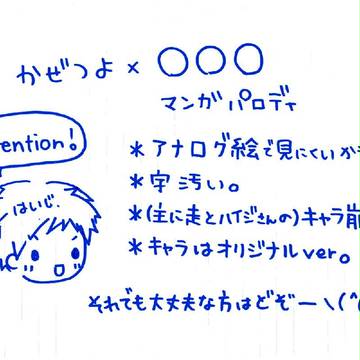 かぜつよ × ○○○
マンガパロディ
ention!
はいじ.
*アナログ絵で見にくいか
*字汚い。
*(主に走とハイジさんの)キャラ崩
*キャラはオリジナルver。
それでも大丈夫な方はどぞー\(^